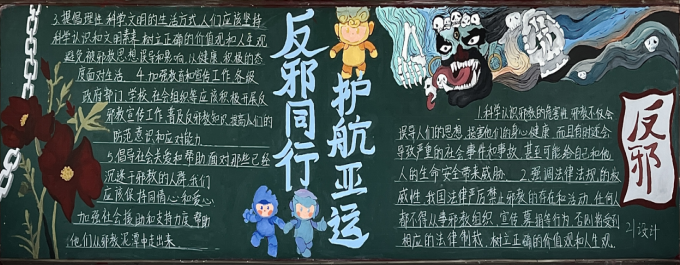 反邪同行
护航亚运
反邪
1.科学认识邪教的危害性,邪教不仅会
误导人们的思想,损害他们的身心健康,而且有时还会
导致严重的社会事件和事故,甚至可能给自己和他
人的生命安全带来威胁.2.强调法律法规的权
威性,我国法律严厉禁止邪教的存在和活动,任何人
都不得从事邪教组织,宣传,募捐等行为,否则将受到
相应的法律制裁,树立正确的价值观和人生观.
21设计
3.提倡理性科学文明的生活方式,人们应该坚持
科学认识和文明素养,树立正确的价值观和人生观
避免被邪教思想误导和影响,以健康,积极的态
度面对生活.4.加强教育和宣传工作,各级
政府部门,学校,社会组织等应该积极开展反
邪教宣传工作,普及反邪教知识,提高人们的
防范意识和应对能力
5.倡导社会关爱和帮助,面对那些已经
沉迷于邪教的人群,我们
应该保持同情心和爱心
加强社会援助和支持力度,帮助
他们从邪教泥潭中走出来